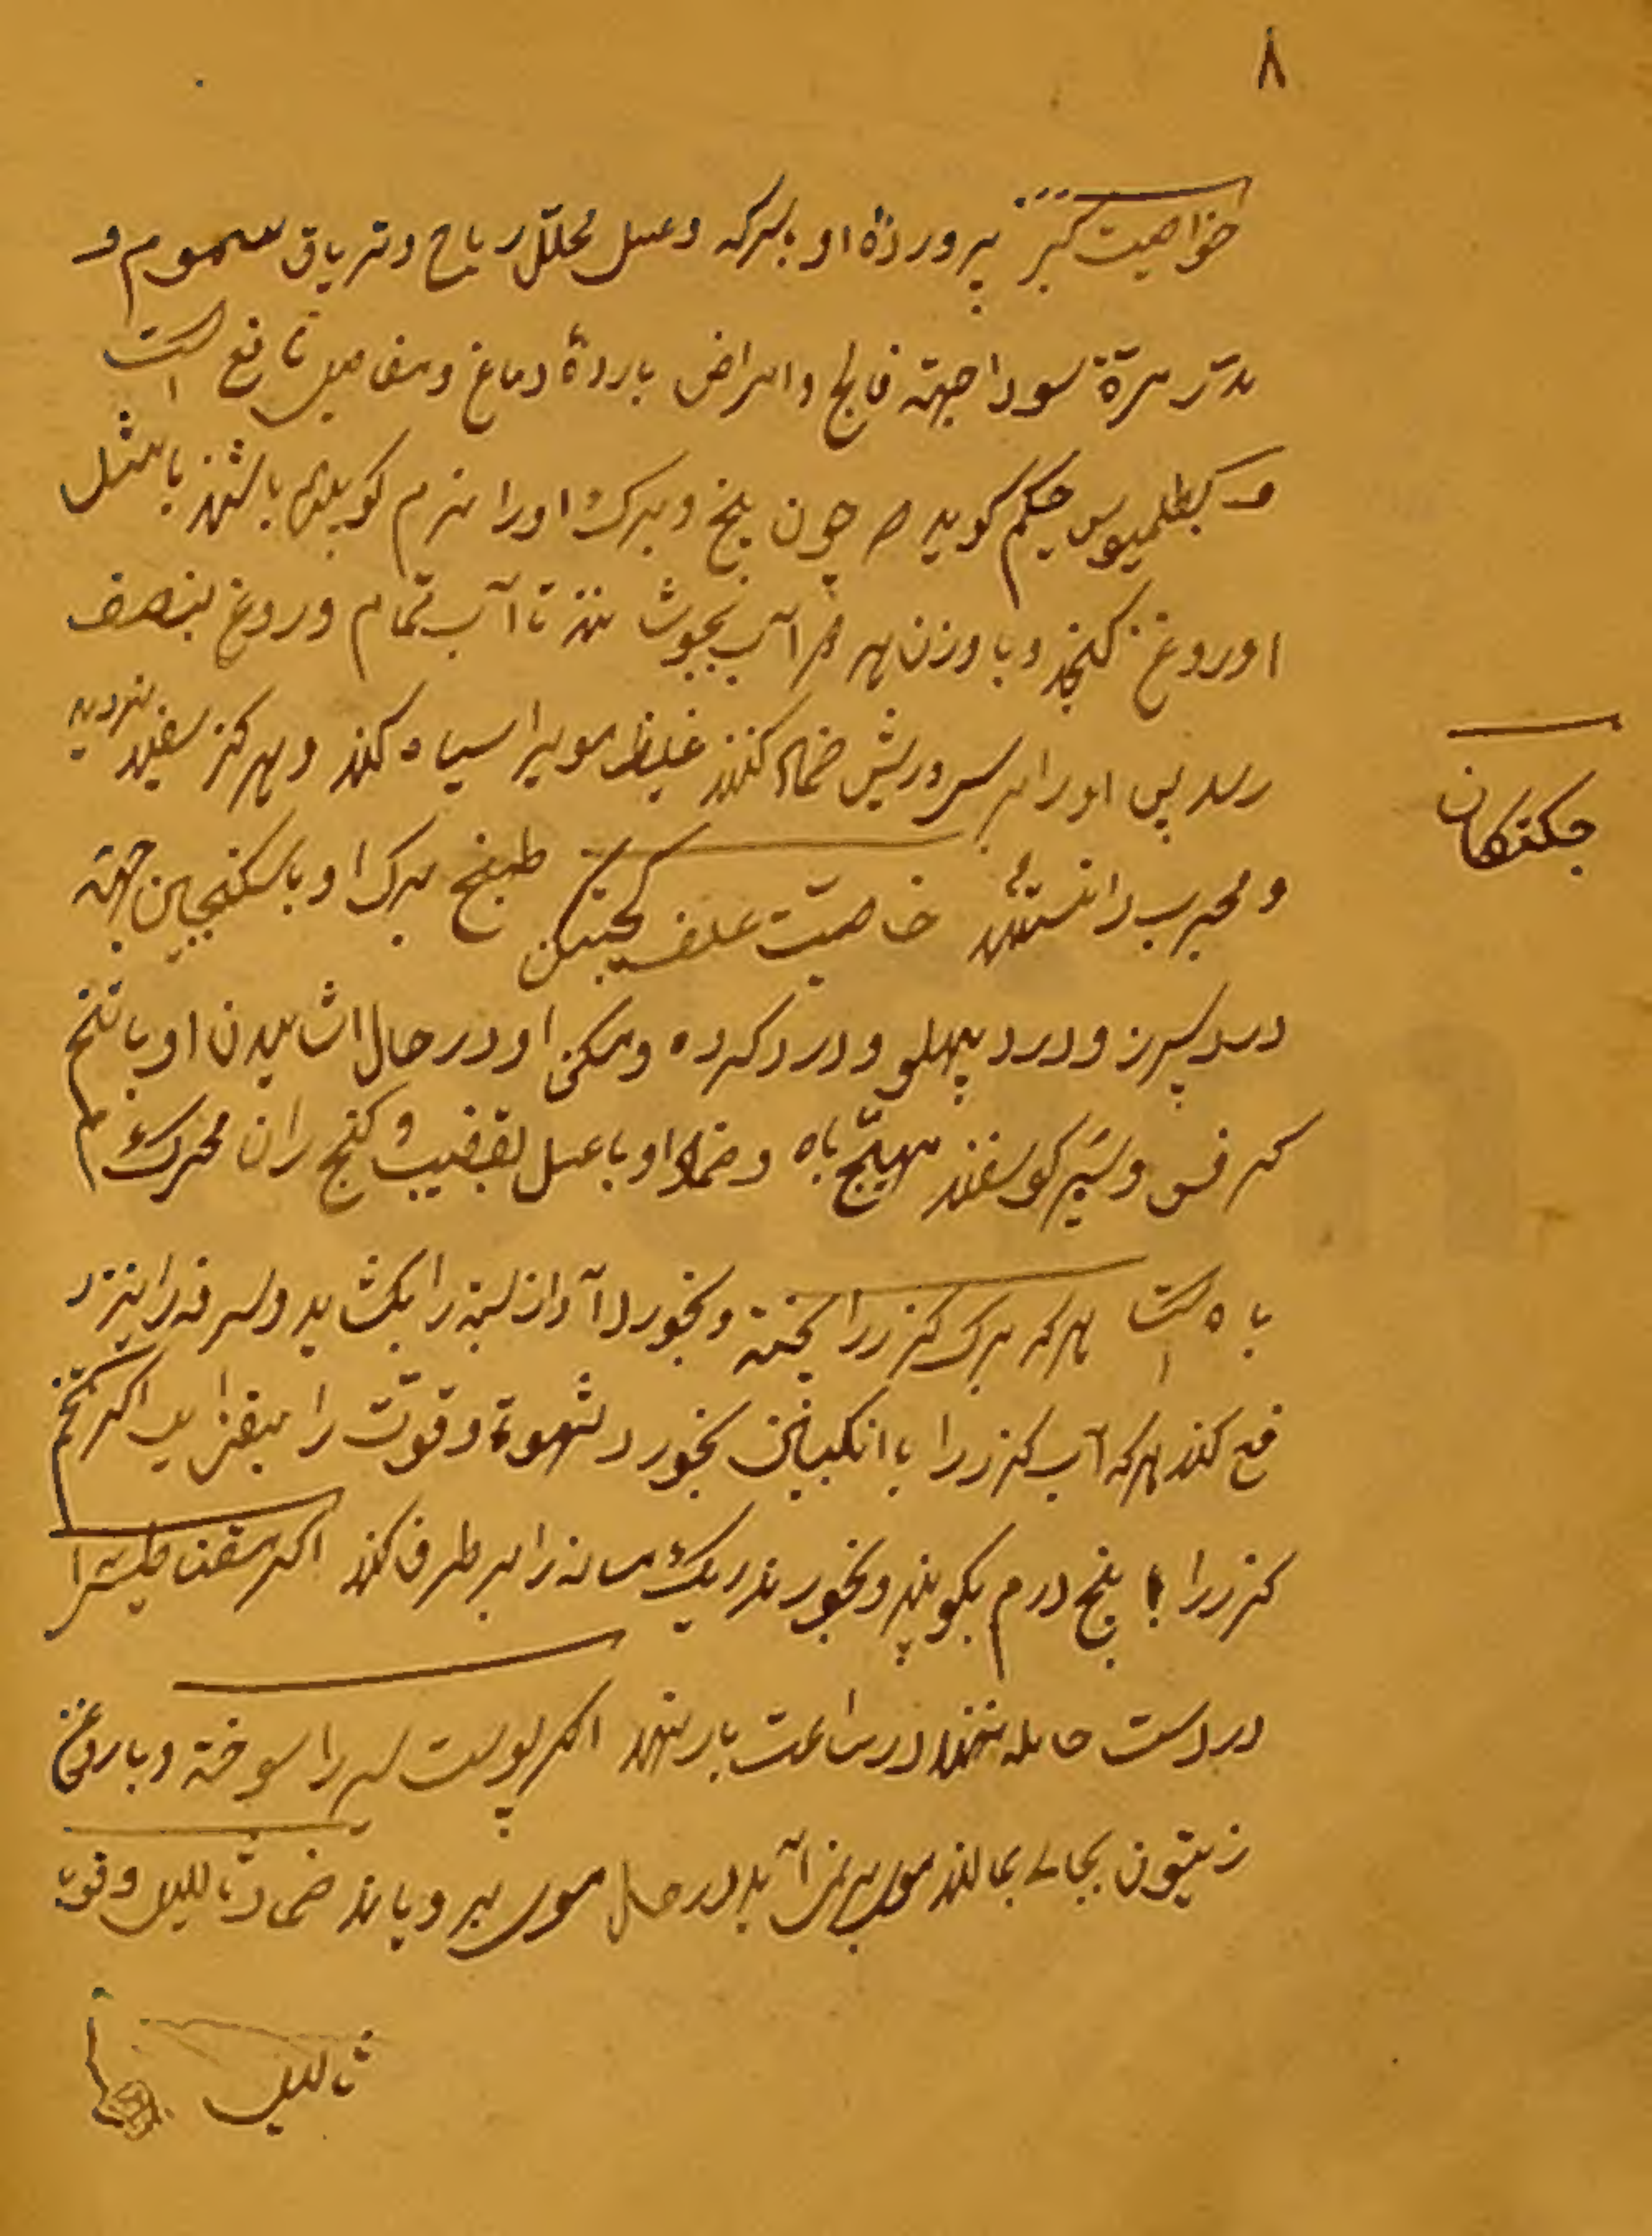 ۸
خواصیت کبر پرورده او بسرکه و عسل محلّل ریاح و تریاق سموم و
مدرّ مرّة سودا جهته فالج و امراض بارده دماغ و مفاصل نافع است
و بطلمیوس حکیم گوید چون بیخ و برک او را نرم کوبیده باشند با مثل
او روغن کنجد و با وزن هر دو آب بجوشانند تا آب تمام و روغن بنصف
رسد پس او را بر سر و ریش ضماد کنند غلیظ مویرا سیاه کند و هرکز سفید نکردد
جکتکان
و مجرب دانستهاند خاصیت علف طبیخ برک او با سکنجبین جهته
درد سپرز و درد پهلو و درد کرده و او در حال اشامیدن او با تخم
کرفس و شیر کوسفند مهیّج باه و ضماد او با عسل بقضیب و کنج ران محرک
باه است هرکه برک کزر را پخته و بخورد آواز بسته را بکشاید و سرفه را نیز د
فع کند هرکه آب کزر را با انکبین بخورد شهوة و قوّت را بیفزاید اکر تخم
کزر را پنج درم بکوبند و بخورند ریک مثانه را بر طرف کند اکر مقناطیس را
در دست حامله نهند در ساعت بار نهد اکر پوست سیر را سوخته و با روغن
زیتون بجای بمالند موی برنمی آید در حال موی برویاند ضماد ثالیل و قوبا
ثالیل